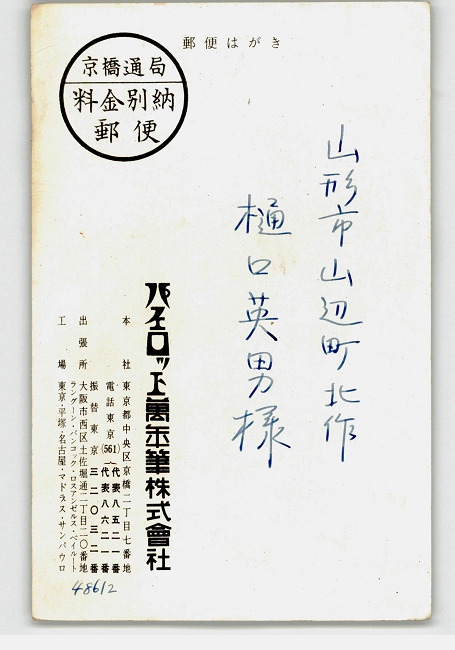 郵便はがき
京橋通局
料金別納
郵便
山形市山辺町北作
樋口英男様
パイロット萬年筆株式會社
本社 東京都中央区京橋二丁目七番地
電話東京(561)(代表八五二一番
代表八六二一番
振替東京 三二〇三二番
出張所 大阪市西区土佐堀通二丁目二〇番地
ラングーン・バンコック・ロスアンゼルス・ベイルート
工場 東京・平塚・名古屋・マドラス・サンパウロ
48612